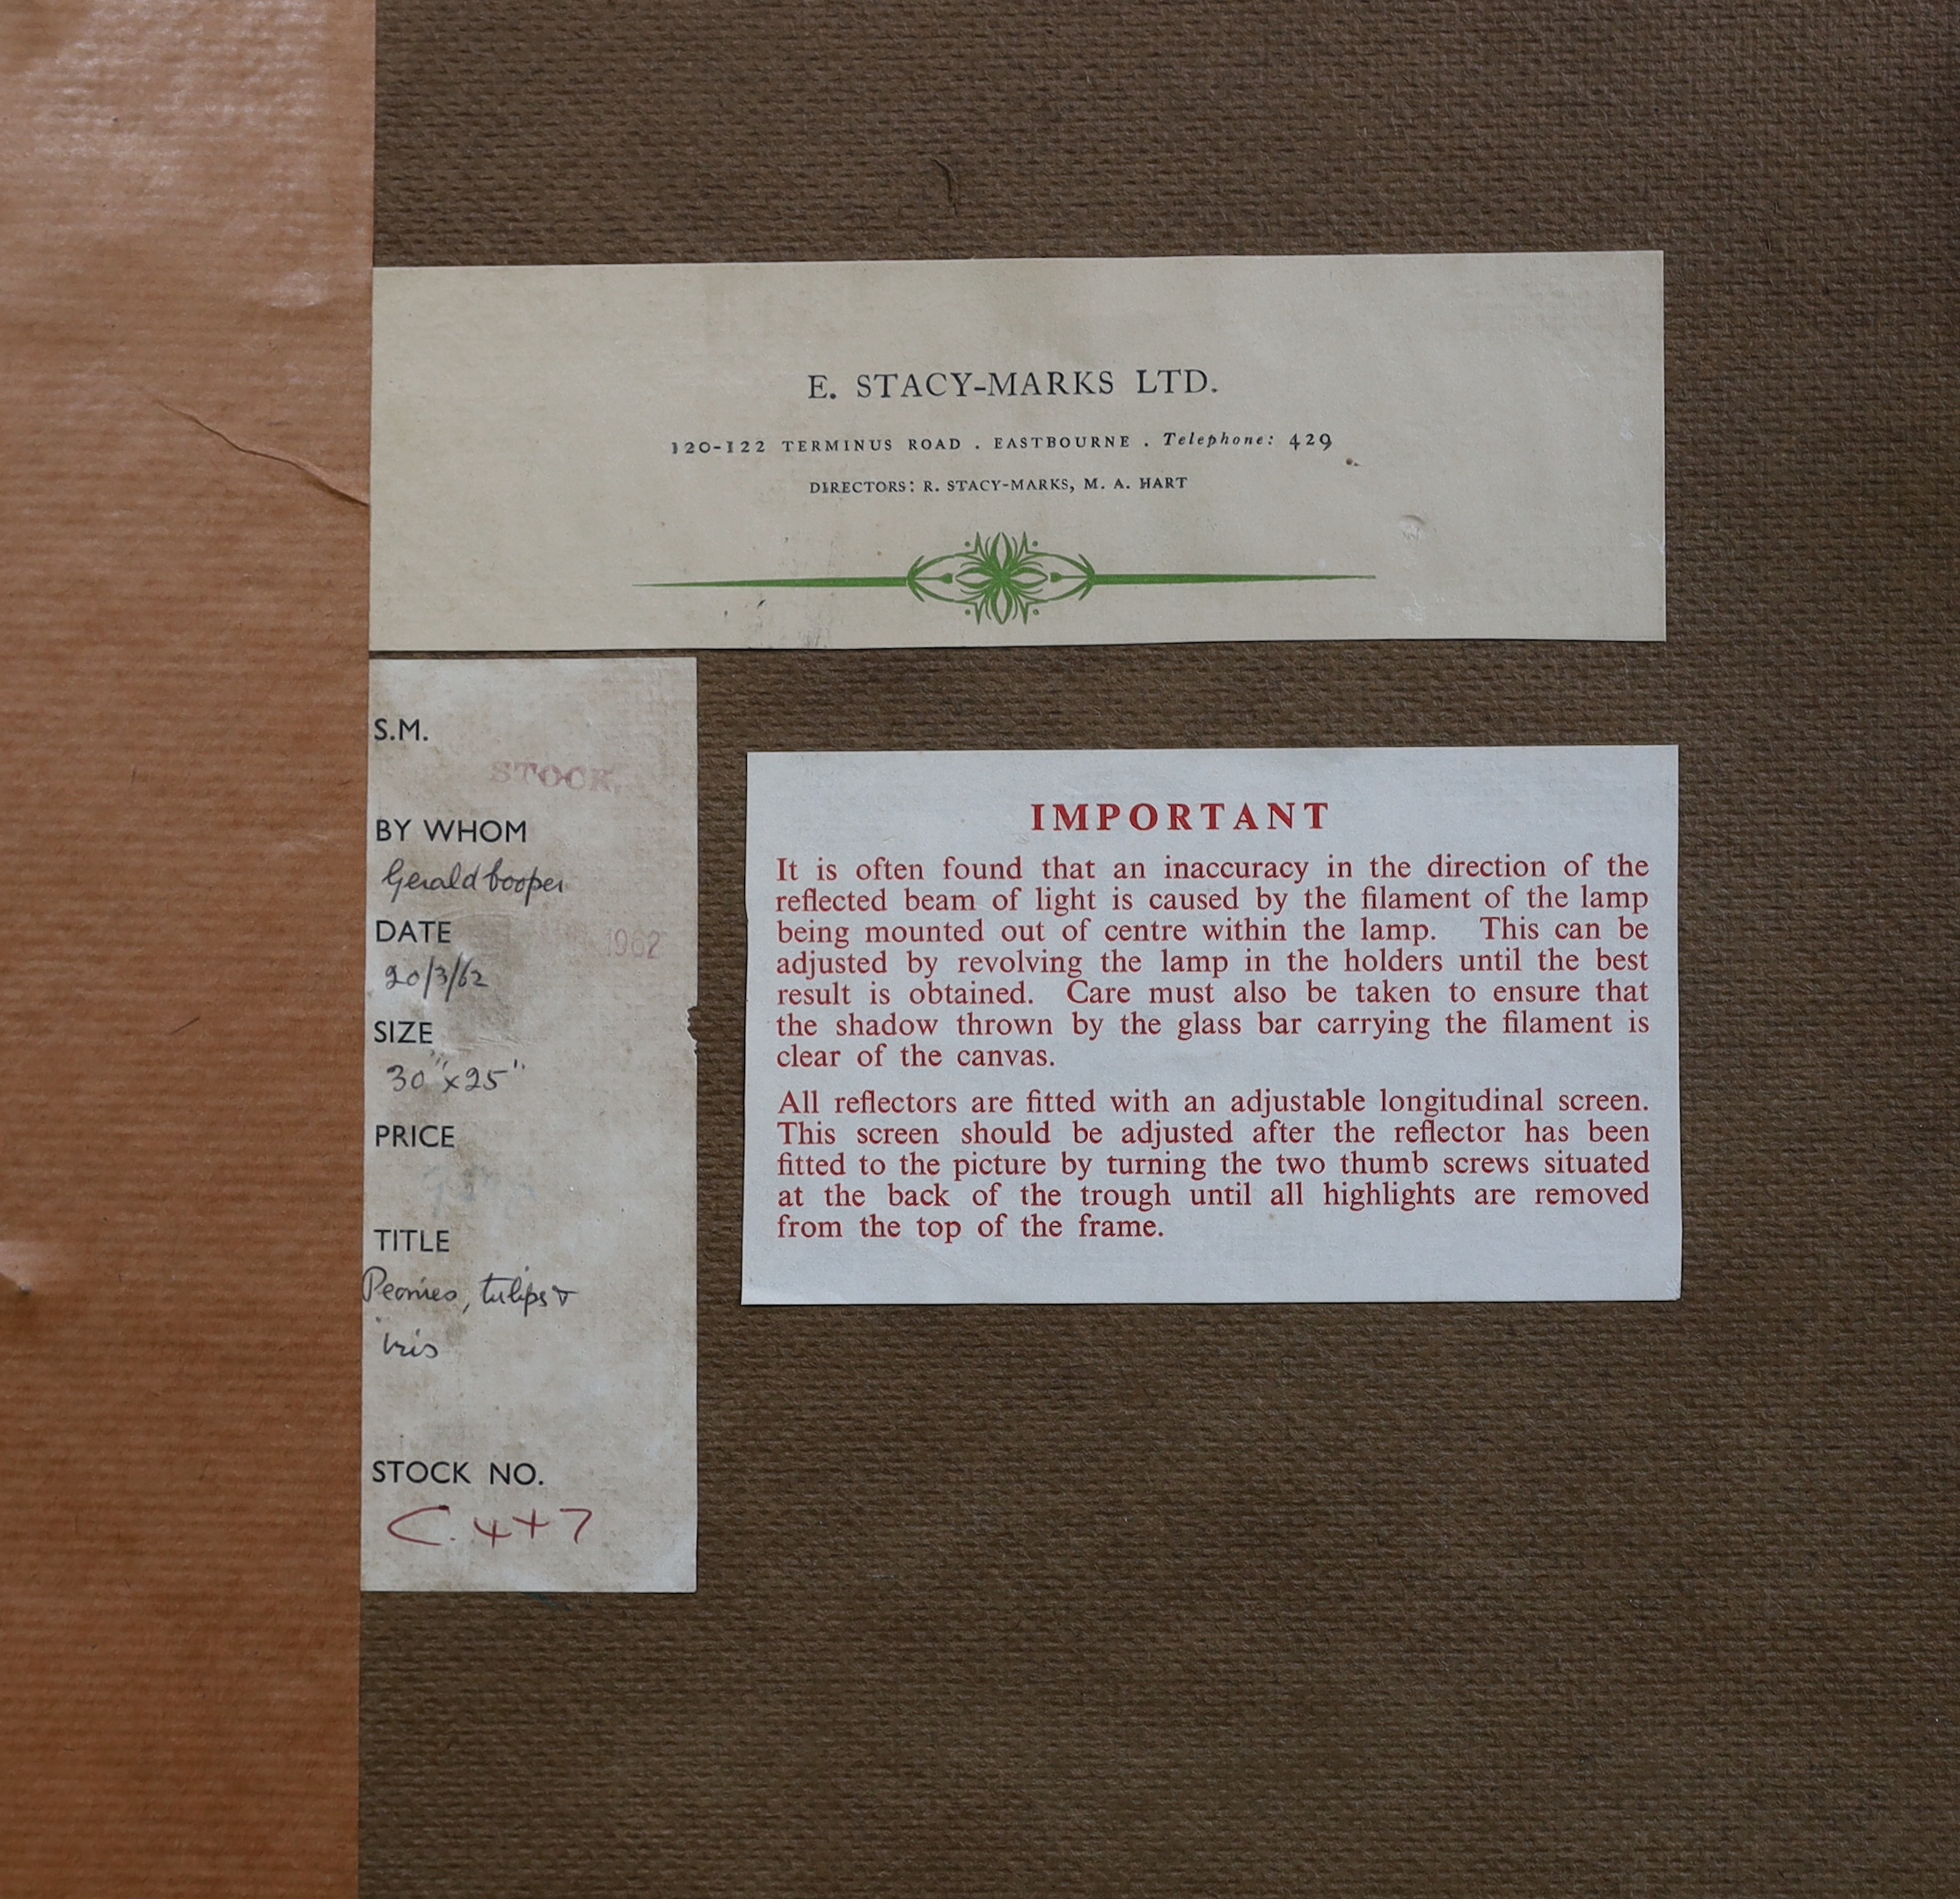 E. STACY-MARKS LTD.
120-122 TERMINUS ROAD . EASTBOURNE . Telephone: 429
DIRECTORS: R. STACY-MARKS, M. A. HART
S.M.
STOCK.
BY WHOM
Gerald Cooper
DATE
1962
20/3/62
SIZE
30" x 25"
PRICE
TITLE
Peonies, tulips &
iris
STOCK NO.
C.447
IMPORTANT
It is often found that an inaccuracy in the direction of the
reflected beam of light is caused by the filament of the lamp
being mounted out of centre within the lamp. This can be
adjusted by revolving the lamp in the holders until the best
result is obtained. Care must also be taken to ensure that
the shadow thrown by the glass bar carrying the filament is
clear of the canvas.
All reflectors are fitted with an adjustable longitudinal screen.
This screen should be adjusted after the reflector has been
fitted to the picture by turning the two thumb screws situated
at the back of the trough until all highlights are removed
from the top of the frame.